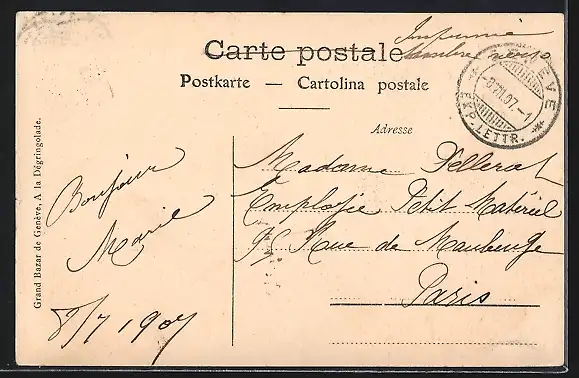 Imprimé
Carte postale
Postkarte — Cartolina postale
GENÈVE
-8.VII.07.-1
EXP. LETTR.
Adresse
Madame Pellerat
Employée Petit Matériel
Rue de Maubeuge
Paris
Bonjour
Marie
8/7 1907
Grand Bazar de Genève, A la Dégringolade.